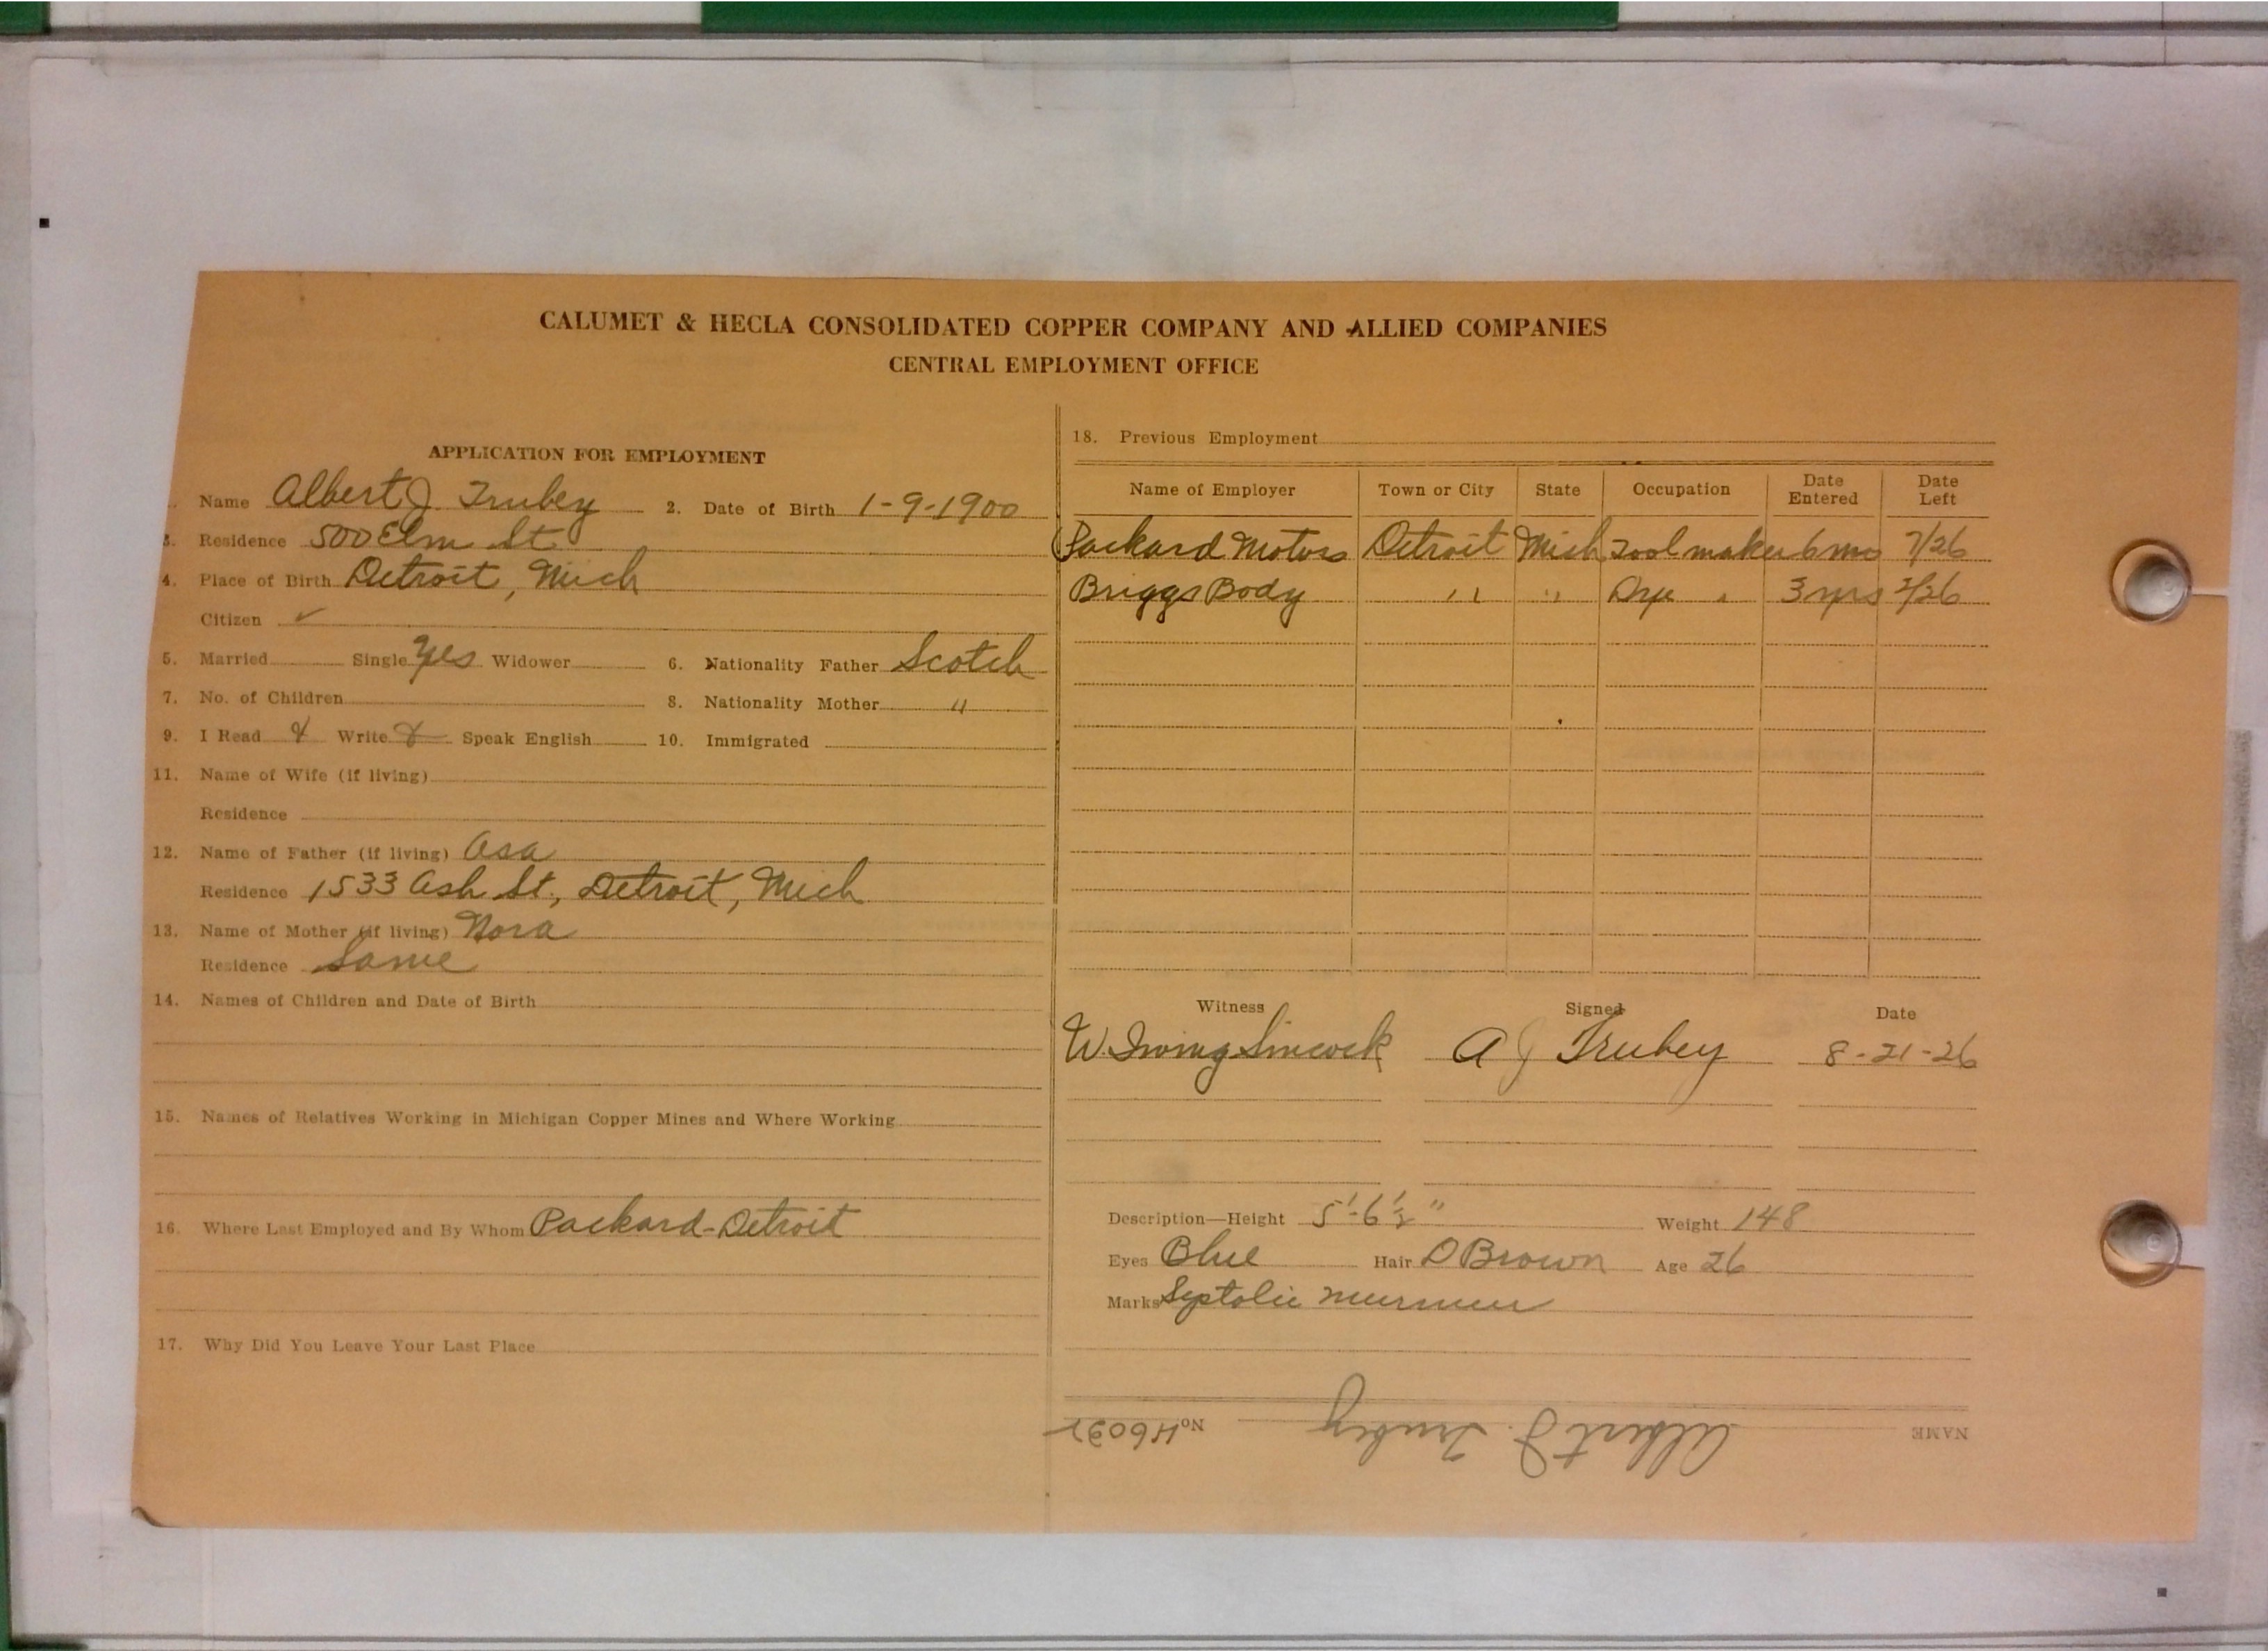 CALUMET & HECLA CONSOLIDATED COPPER COMPANY AND ALLIED COMPANIES
CENTRAL EMPLOYMENT OFFICE
APPLICATION FOR EMPLOYMENT
Name Albert J. Trubey 2. Date of Birth 1-9-1900
3. Residence 500 Elm St
4. Place of Birth Detroit, Mich
Citizen ✓
5. Married Single Yes Widower 6. Nationality Father Scotch
7. No. of Children 8. Nationality Mother "
9. I Read Write Speak English 10. Immigrated
11. Name of Wife (if living)
Residence
12. Name of Father (if living) Asa
Residence 1533 Ash St., Detroit, Mich
13. Name of Mother (if living) Nora
Residence Same
14. Names of Children and Date of Birth
15. Names of Relatives Working in Michigan Copper Mines and Where Working
16. Where Last Employed and By Whom Packard-Detroit
17. Why Did You Leave Your Last Place
18. Previous Employment
Name of Employer Town or City State Occupation Date Entered Date Left
Packard Motors Detroit Mich Tool maker 6 mo 7/26
Briggs Body " " Dye " 3 yrs /26
Witness Signed Date
W. Irving Sincock A J Trubey 8-21-26
Description—Height 5'-6½" Weight 148
Eyes Blue Hair D Brown Age 26
Marks Systolic murmur
NAME Albert J. Trubey No